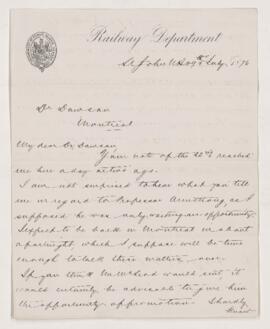 Railway Department
St John N.B. 29th July 1876
Dr Dawson
Montreal
My dear Dr Dawson
Your note of the 22nd reached
me here a day or two ago.
I am not surprised to hear what you tell
me in regard to Professor Armstrong, as I
supposed he was only waiting an opportunity.
I expect to be back in Montreal in about
a fortnight, which I suppose will be time
enough to talk these matters over.
If you think Mr McLeod would suit, it
would certainly be advisable to give him
the opportunity of promotion. I hardly
know